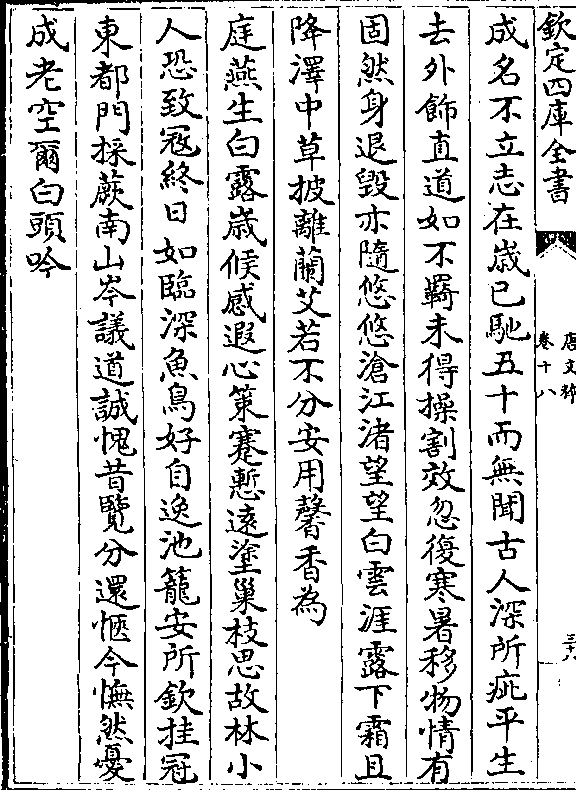 欽定四庫全書
唐文粹
卷十八
三十八
成名不立志在歲已馳五十而無聞古人深所疵平生
去外飾直道如不羈未得操割效忽復寒暑移物情有
固然身退毀亦隨悠悠滄江渚望望白雲涯露下霜且
降澤中草披離蘭艾若不分安用馨香為
庭燕生白露歲候感遐心策蹇慙遠塗巢枝思故林小
人恐致寇終日如臨深魚鳥好自逸池籠安所欽挂冠
東都門採蕨南山岑議道誠愧昔覽分還愜今憮然憂
成老空爾白頭吟